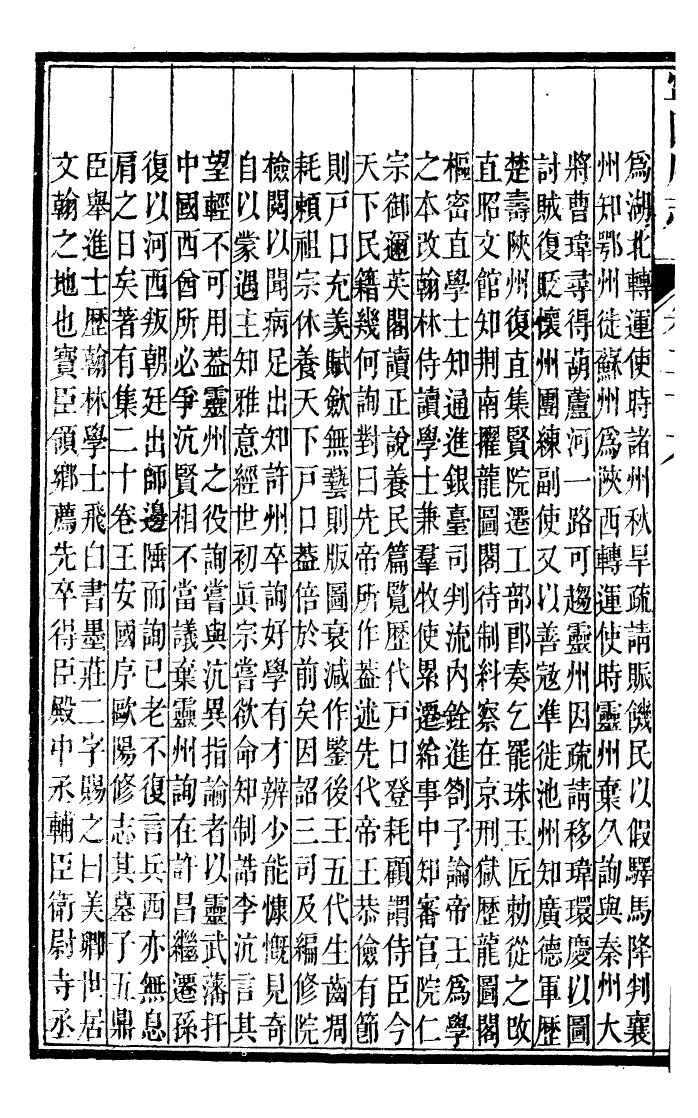 為湖北轉運使時諸州秋旱疏請賑饑民以假驛馬降判襄
州知鄂州徙蘇州為陝西轉運使時靈州棄久詢與秦州大
將曹瑋尋得葫蘆河一路可趨靈州因疏請移瑋環慶以圖
討賊復貶懷州團練副使又以善寇凖徙池州知廣德軍歷
楚壽陝州復直集賢院遷工部郎奏乞罷珠玉匠勅從之改
直昭文館知荆南擢龍圖閣待制糾察在京刑獄歷龍圖閣
樞密直學士知通進銀臺司判流內銓進劄子論帝王為學
之本改翰林侍讀學士兼羣牧使累遷給事中知審官院仁
宗御邇英閣讀正說養民篇覽歷代戶口登耗顧謂侍臣今
天下民籍幾何詢對曰先帝所作葢述先代帝王恭儉有節
則戶口充羨賦歛無藝則版圖衰減作鑒後王五代生齒凋
耗賴祖宗休養天下戶口葢倍於前矣因詔三司及編修院
檢閱以聞病足出知許州卒詢好學有才辨少能慷慨見奇
自以蒙遇主知雅意經世初眞宗嘗欲命知制誥李沆言其
望輕不可用葢靈州之役詢嘗與沆異指論者以靈武藩扞
中國西酋所必爭沆賢相不當議棄靈州詢在許昌繼遷孫
復以河西叛朝廷出師邊陲而詢已老不復言兵西亦無息
肩之日矣著有集二十卷王安國序歐陽修志其墓子五鼎
臣舉進士歷翰林學士飛白書墨莊二字賜之曰美卿世居
文翰之地也寶臣領鄉薦先卒得臣殿中丞輔臣衛尉寺丞